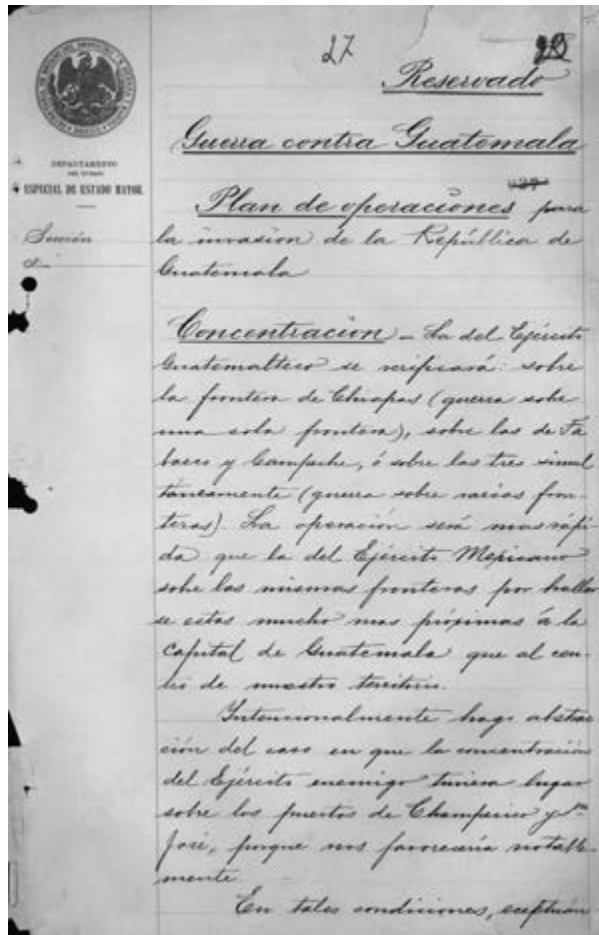 27
Reservado
Guerra contra Guatemala
DEPARTAMENTO
DEL CUERPO
ESPECIAL DE ESTADO MAYOR.
Plan de operaciones para
Sección
la invasion de la República de
Guatemala
Concentración - La del Ejército
Guatemalteco se verificará: sobre
la frontera de Chiapas (guerra sobre
una sola frontera), sobre las de Ta
basco y Campeche, ó sobre las tres simul
táneamente (guerra sobre varias fron-
teras). La operación será mas rápi-
da que la del Ejército Mexicano
sobre las mismas fronteras por hallar
se estas mucho mas próximas á la
Capital de Guatemala que al cen-
tro de nuestro territorio.
Intencionalmente hago abstrac
ción del caso en que la concentración
del Ejército enemigo tuviera lugar
sobre los puertos de Champerico y Sn
José, porque nos favorecería notable-
mente.
En tales condiciones, exceptuan